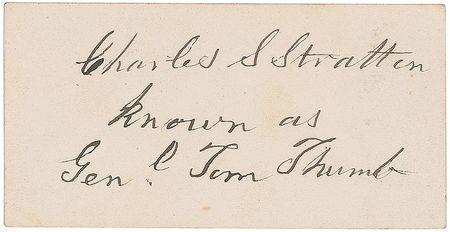 Charles S Stratton
known as
Genl. Tom Thumb